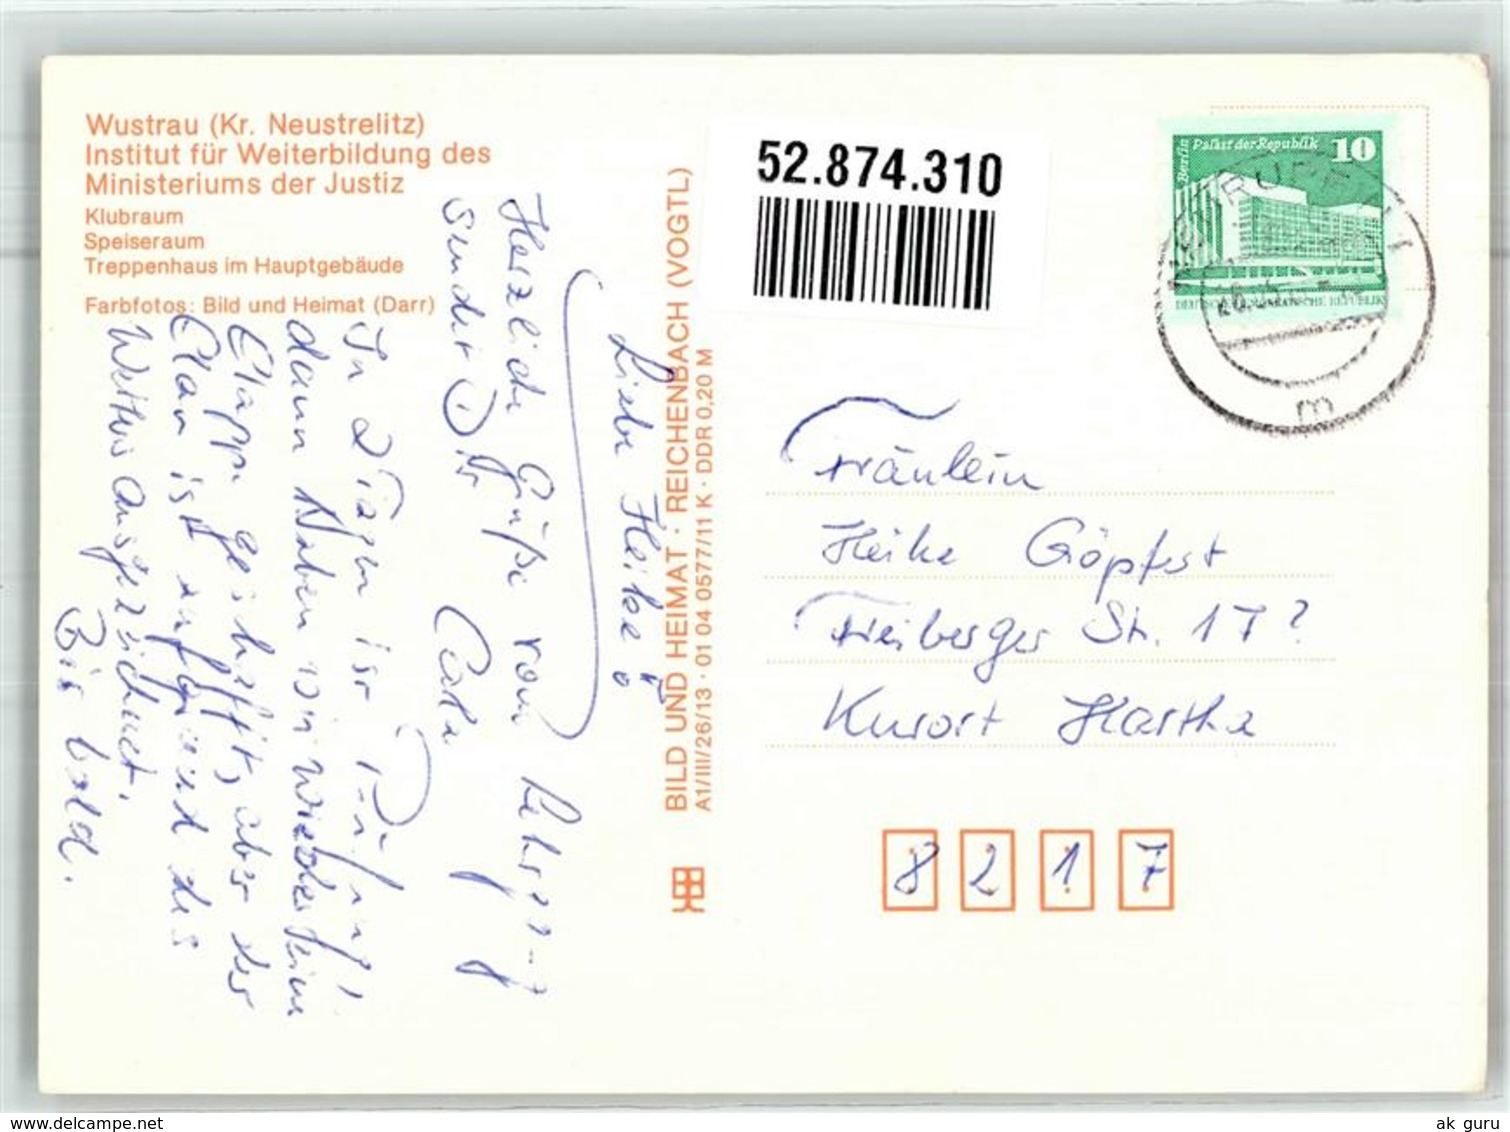 Wustrau (Kr. Neustrelitz)
Institut für Weiterbildung des
Ministeriums der Justiz
Klubraum
Speiseraum
Treppenhaus im Hauptgebäude
Farbfotos: Bild und Heimat (Darr)
Liebe Heike!
Herzliche Grüße vom
sendet Dir
In 2 Tagen ist Prüfung,
dann haben wir wieder eine
Etappe geschafft, aber der
Elan ist aufgrund des
Wetters ausgezeichnet.
Bis bald.
BILD UND HEIMAT · REICHENBACH (VOGTL)
A1/III/26/13 · 01 04 0577/11 K · DDR 0,20 M
52.874.310
Berlin Palast der Republik 10
DEUTSCHE DEMOKRATISCHE REPUBLIK
m
Fräulein
Heike Göpfert
Freiberger Str. 17?
Kurort Hartha
8 2 1 7
www.delcampe.net
ak guru